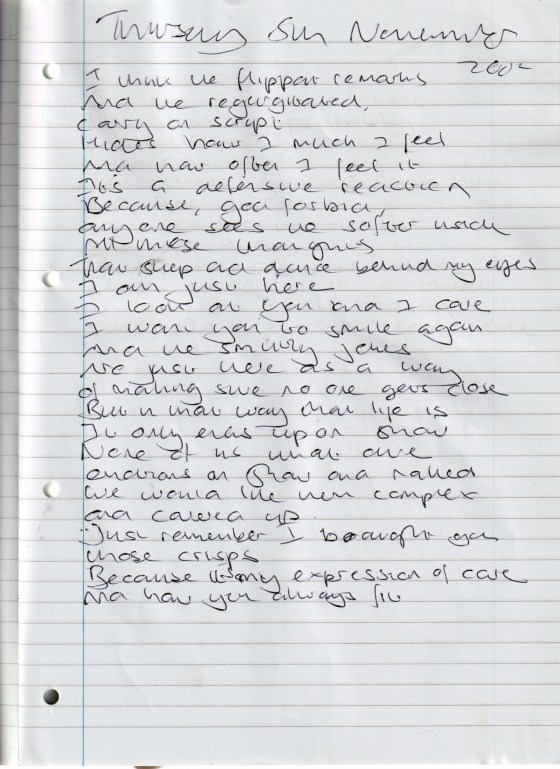 Thursday 5th November
2002
I think the flippant remarks
And the regurgitated,
Carry on script
Hides how I much I feel
And how often I feel it
It's a defensive reaction
Because, god forbid,
anyone sees the softer inside
All these thoughts
That skip and dance behind my eyes
I am just here
I look at you and I care
I want you to smile again
And the smutty jokes
Are just here as a way
of making sure no one gets close
But in that way that life is
It only ends up on show
None of us what our
emotions on show and naked
We would like them complex
and covered up
Just remember I bought you
those crisps
Because it's my expression of care
And how you always fit